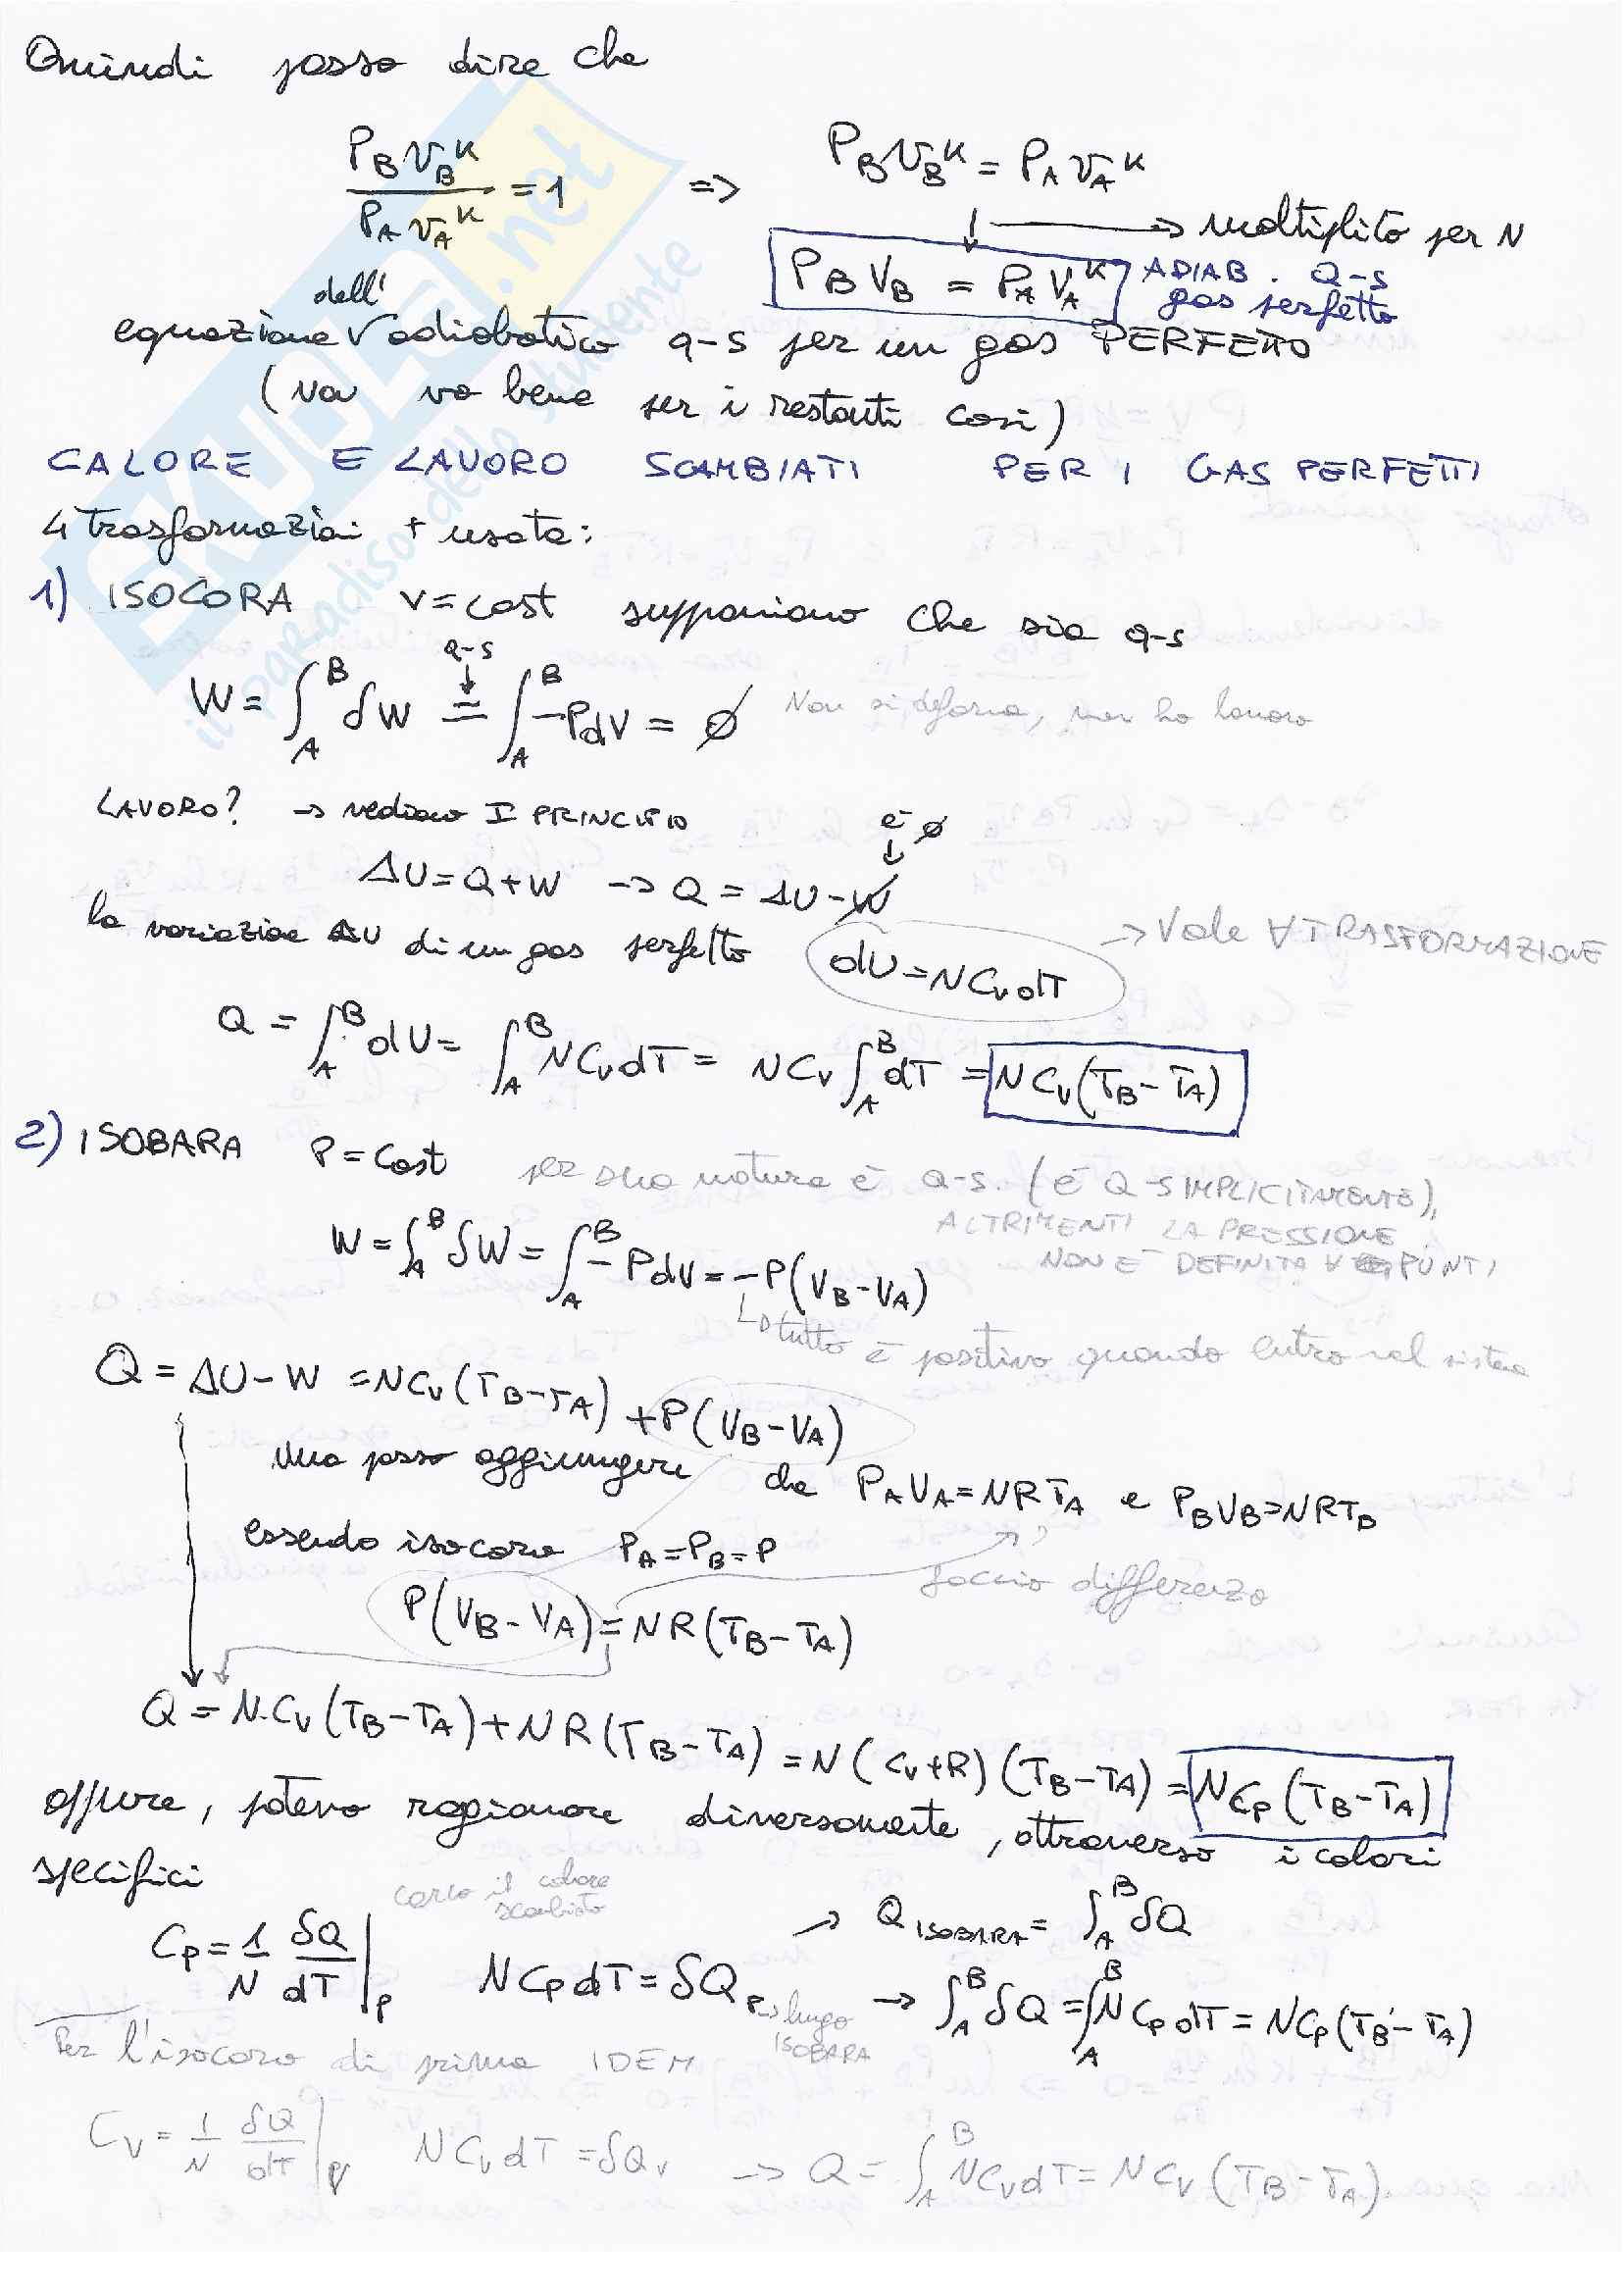 Quindi posso dire che
P_B v_B^K / P_A v_A^K = 1 => P_B v_B^K = P_A v_A^K
↓ → moltiplico per N
P_B V_B = P_A V_A^K ADIAB. Q-S
gas perfetto
dell'
equazione V adiabatica q-s per un gas PERFETTO
(non va bene per i restanti casi)
CALORE E LAVORO SCAMBIATI PER I GAS PERFETTI
4 trasformazioni + usate:
1) ISOCORA V=cost supponiamo che sia q-s
Q-S
↓
W = ∫_A^B δW = ∫_A^B -PdV = ∅ Non si deforma, non ho lavoro
LAVORO? → vediamo I PRINCIPIO
è ∅
↓
ΔU = Q+W → Q = ΔU - W
la variazione ΔU di un gas perfetto dU = NCvdT → Vale ∀ TRASFORMAZIONE
Q = ∫_A^B dU = ∫_A^B NCvdT = NCv ∫_A^B dT = NCv(T_B - T_A)
2) ISOBARA P=cost per sua natura è Q-S. (È Q-S IMPLICITAMENTE),
ALTRIMENTI LA PRESSIONE
NON È DEFINITA ∀ PUNTI
W = ∫_A^B δW = ∫_A^B -PdV = -P(V_B - V_A)
↳ tutto è positivo quando entro nel sistema
Q = ΔU - W = NCv(T_B - T_A) + P(V_B - V_A)
Ma posso aggiungere che P_A V_A = NRT_A e P_B V_B = NRT_B
essendo isocora P_A = P_B = P
faccio differenza
P(V_B - V_A) = NR(T_B - T_A)
Q = N·Cv(T_B - T_A) + NR(T_B - T_A) = N(Cv+R)(T_B - T_A) = NCp(T_B - T_A)
oppure, potevo ragionare diversamente, attraverso i calori
specifici
cerco il calore
scambiato
→ Q_ISOBARA = ∫_A^B δQ
Cp = 1/N δQ/dT |_P NCpdT = δQ_P → lungo
ISOBARA
→ ∫_A^B δQ = ∫_A^B NCpdT = NCp(T_B - T_A)
Per l'isocora di prima IDEM
Cv = 1/N δQ/dT |_V NCvdT = δQ_V → Q = ∫_A^B NCvdT = NCv(T_B - T_A).
SKUOLA.net
il paradiso dello studente